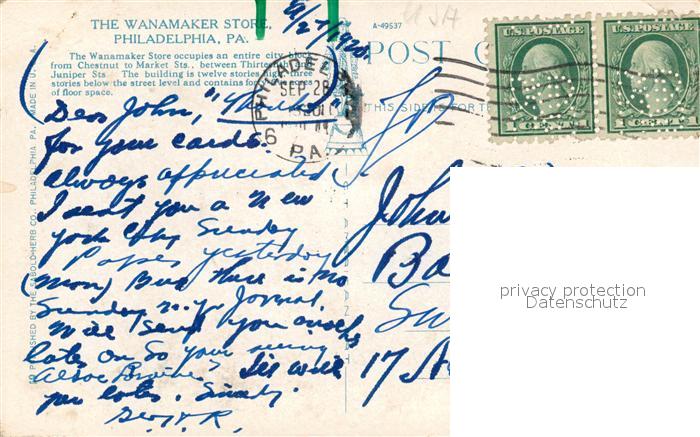 THE WANAMAKER STORE,
PHILADELPHIA, PA.
The Wanamaker Store occupies an entire city block
from Chestnut to Market Sts., between Thirteenth and
Juniper Sts The building is twelve stories high, three
stories below the street level and contains
of floor space.
A-49537
USA
POST C
THIS SIDE FOR
PHILADELPHIA
SEP 28
6 PA.
U.S. POSTAGE
1 CENT 1
U.S. POSTAGE
1 CENT 1
MADE IN U. S. A.
PUBLISHED BY THE SABOLD-HERB CO., PHILADELPHIA, PA.
Dear John, "Thanks"
for your cards.
always appreciated
I sent you a New
York City Sunday
Paper yesterday
(Mon) But there is no
Sunday n. y. Journal.
Will send you
later on So your
See will
you later. Sincerely
Geo. R.
John
Ba
Su
17 A
privacy protection
Datenschutz